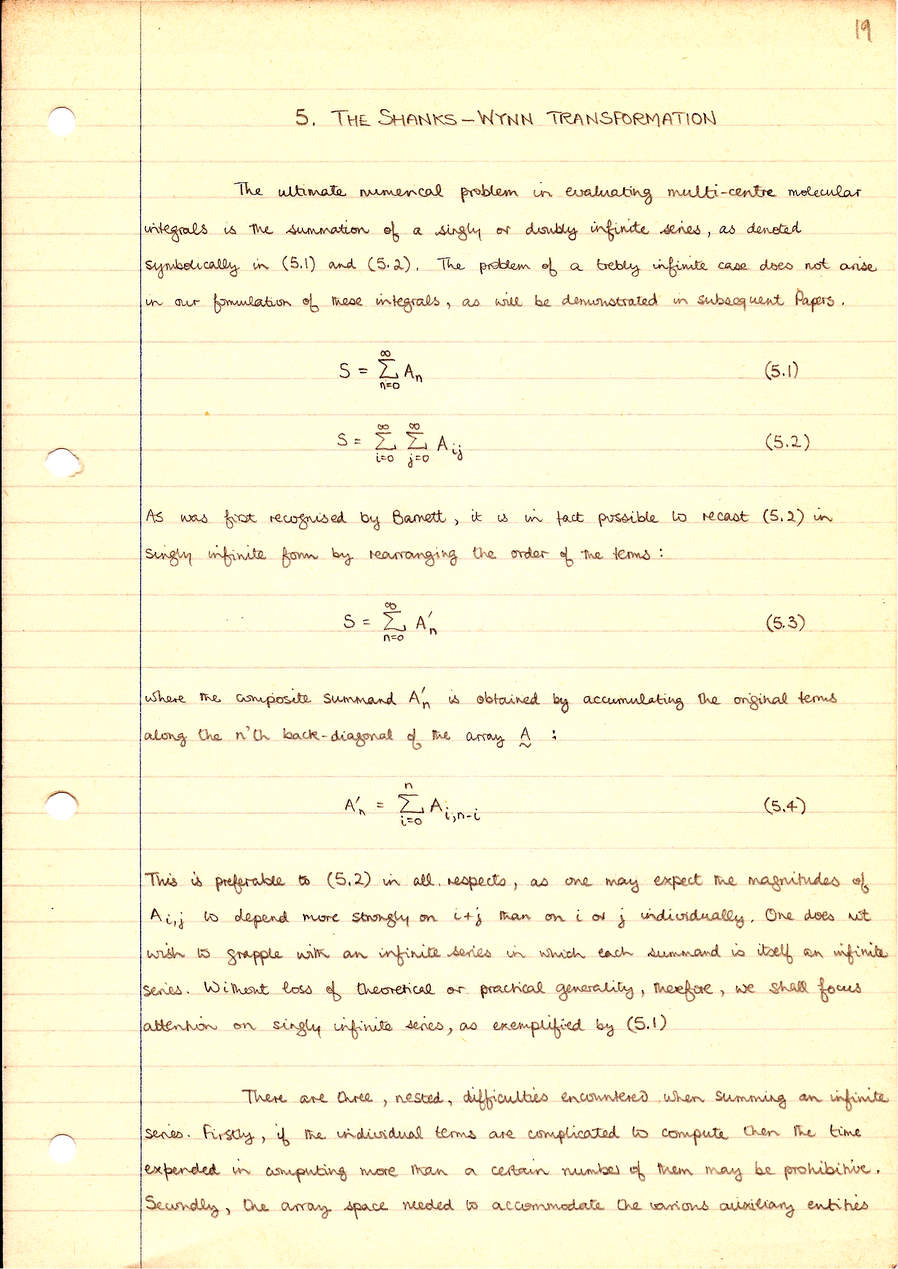 19
5. THE SHANKS-WYNN TRANSFORMATION
The ultimate numerical problem in evaluating multi-centre molecular
integrals is the summation of a singly or doubly infinite series, as denoted
symbolically in (5.1) and (5.2). The problem of a trebly infinite case does not arise
in our formulation of these integrals, as will be demonstrated in subsequent Papers.
S = ∞ Σ n=0 Aₙ (5.1)
S = ∞ Σ i=0 ∞ Σ j=0 A ij (5.2)
As was first recognised by Barnett, it is in fact possible to recast (5.2) in
singly infinite form by rearranging the order of the terms:
S = ∞ Σ n=0 A′ₙ (5.3)
where the composite summand A′ₙ is obtained by accumulating the original terms
along the n'th back-diagonal of the array A :
A′ₙ = n Σ i=0 A i,n-i (5.4)
This is preferable to (5.2) in all respects, as one may expect the magnitudes of
A i,j to depend more strongly on i+j than on i or j individually. One does not
wish to grapple with an infinite series in which each summand is itself an infinite
series. Without loss of theoretical or practical generality, therefore, we shall focus
attention on singly infinite series, as exemplified by (5.1)
There are three, nested, difficulties encountered when summing an infinite
series. Firstly, if the individual terms are complicated to compute then the time
expended in computing more than a certain number of them may be prohibitive.
Secondly, the array space needed to accommodate the various auxiliary entities